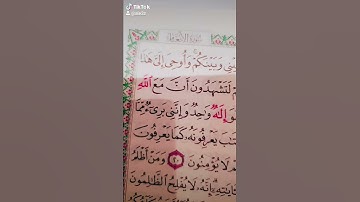 TikTok
سُورَةُ الأَنْعَام
بَيْنِي وَبَيْنَكُمْ وَأُوحِيَ إِلَيَّ هَٰذَا
لَتَشْهَدُونَ أَنَّ مَعَ اللَّهِ
إِلَٰهٌ وَٰحِدٌ وَإِنَّنِي بَرِيٓءٌ مِّمَّا
يَعْرِفُونَهُۥ كَمَا يَعْرِفُونَ
لَا يُؤْمِنُونَ ٢٠ وَمَنْ أَظْلَمُ
إِنَّهُۥ لَا يُفْلِحُ الظَّٰلِمُونَ